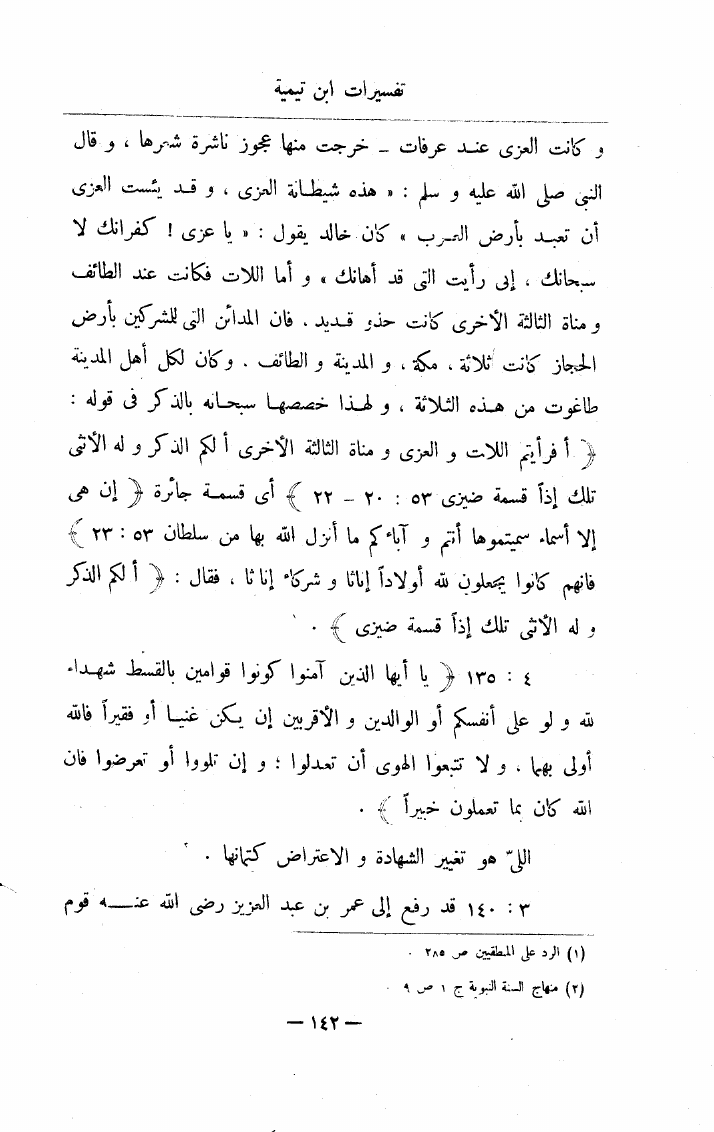 تفسيرات ابن تيمية
و كانت العزى عند عرفات ــ خرجت منها عجوز ناشرة شعرها ، و قال
النبى صلى الله عليه و سلم : « هذه شيطانة العزى ، و قد يئست العزى
أن تعبد بأرض العرب » كان خالد يقول : « يا عزى ! كفرانك لا
سبحانك ، إنى رأيت التى قد أهانك » و أما اللات فكانت عند الطائف
و مناة الثالثة الأخرى كانت حذو قديد . فان المدائن التى للشركين بأرض
الحجاز كانت ثلاثة ، مكة ، و المدينة و الطائف . وكان لكل أهل المدينة
طاغوت من هذه الثلاثة ، و لهذا خصصها سبحانه بالذكر فى قوله :
﴿ أ فرأيتم اللات و العزى و مناة الثالثة الأخرى أ لكم الذكر و له الأنثى
تلك إذاً قسمة ضيزى ٥٣ : ٢٠ – ٢٢ ﴾ أى قسمة جائرة ﴿ إن هى
إلا أسماء سميتموها أنتم و آباءكم ما أنزل الله بها من سلطان ٥٣ : ٢٣ ﴾
فانهم كانوا يجعلون لله أولاداً إناثا و شركاء إناثا ، فقال : ﴿ أ لكم الذكر
و له الأنثى تلك إذاً قسمة ضيزى ﴾ .
٤ : ١٣٥ ﴿ يا أيها الذين آمنوا كونوا قوامين بالقسط شهداء
لله و لو على أنفسكم أو الوالدين و الأقربين إن يكن غنيا أو فقيراً فالله
أولى بهما ، و لا تتبعوا الهوى أن تعدلوا ؛ و إن تلووا أو تعرضوا فان
الله كان بما تعملون خبيراً ﴾ .
اللىّ هو تغيير الشهادة و الاعتراض كتمانها .
٣ : ١٤٠ قد رفع إلى عمر بن عبد العزيز رضى الله عنه قوم
(١) الرد على المنطقيين ص ٢٨٥ .
(٢) منهاج السنة النبوية ج ١ ص ٩ .
— ١٤٢ —